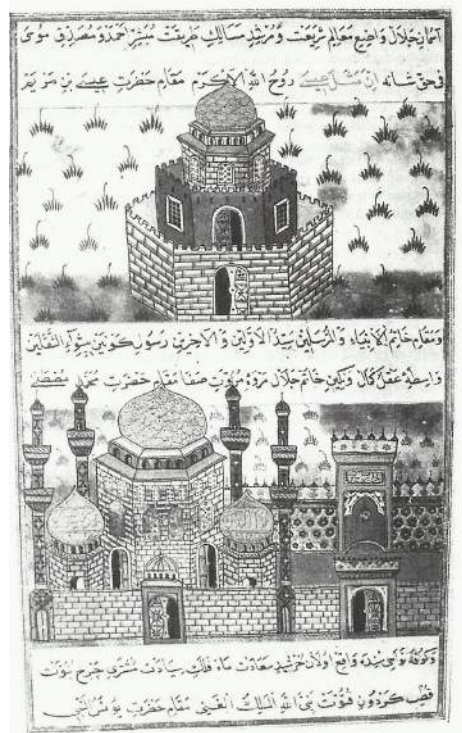 آسمان جلال واضع معالم شریعت و مرشد مسالك طریقت مبشر احمد و مصدق موسی
فی حق شانه ان مثل عیسی روح الله الاكرم مقام حضرت عیسی بن مریم
و مقام خاتم الانبیاء والمرسلین سید الاولین و الاخرین رسول كونین پیشواء الثقلین
واسطهٔ عقد كمال و نكین خاتم جلال مروهٔ مروت صفا مقام حضرت محمد مصطفی
و كوفه نواحیسنده واقع اولان خرشید سعادت ماه فلك سیادت مشتری چرخ
قطب كردون فتوت نبی الله الملك الغنی مقام حضرت یونس النبی